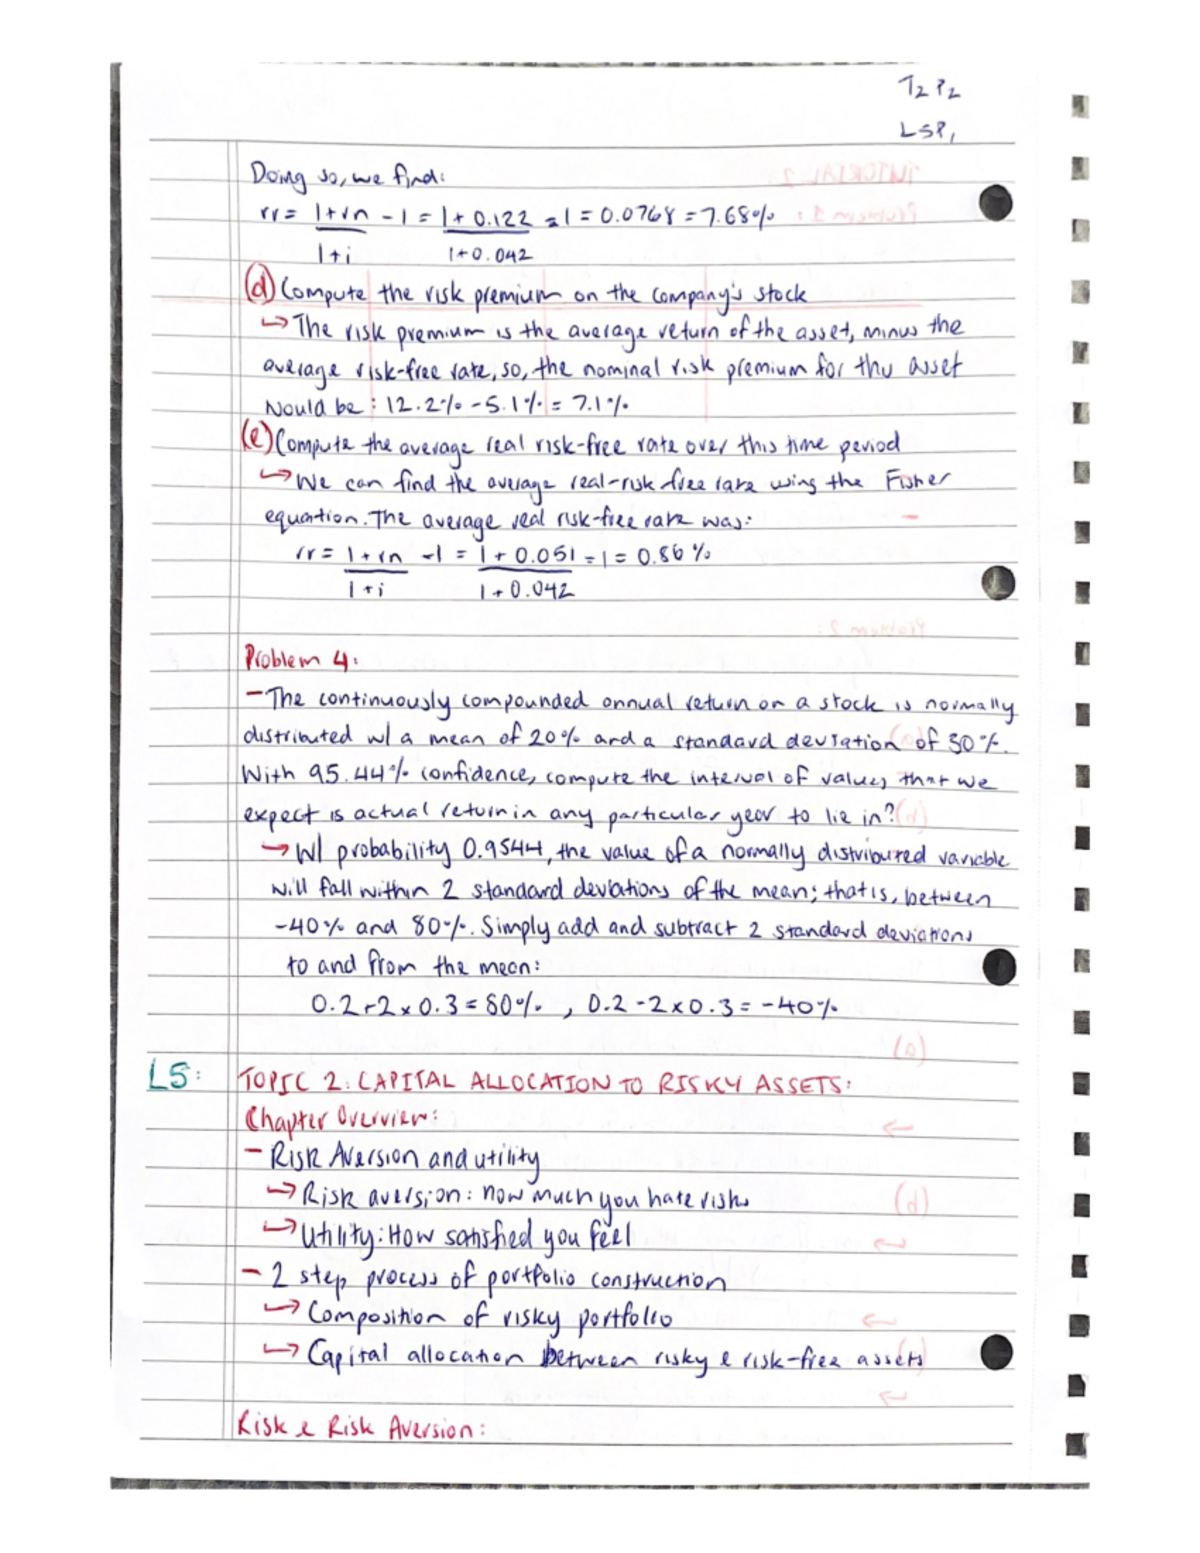 T2 P2
L5P1
Doing so, we find:
rr = 1+rn - 1 = 1+0.122 - 1 = 0.0768 = 7.68%
1+i 1+0.042
(d) Compute the risk premium on the company's stock
↳ The risk premium is the average return of the asset, minus the
average risk-free rate, so, the nominal risk premium for this asset
would be: 12.2% - 5.1% = 7.1%
(e) Compute the average real risk-free rate over this time period
↳ We can find the average real-risk free rate using the Fisher
equation. The average real risk-free rate was:
rr = 1+rn - 1 = 1+0.051 - 1 = 0.86%
1+i 1+0.042
Problem 4:
- The continuously compounded annual return on a stock is normally
distributed w/ a mean of 20% and a standard deviation of 30%.
With 95.44% confidence, compute the interval of values that we
expect is actual return in any particular year to lie in?
→ W/ probability 0.9544, the value of a normally distributed variable
will fall within 2 standard deviations of the mean; that is, between
-40% and 80%. Simply add and subtract 2 standard deviations
to and from the mean:
0.2+2x0.3 = 80%, 0.2-2x0.3 = -40%
L5: TOPIC 2: CAPITAL ALLOCATION TO RISKY ASSETS:
Chapter Overview:
- Risk Aversion and utility
↳ Risk aversion: how much you hate risk
↳ Utility: How satisfied you feel
- 2 step process of portfolio construction
↳ Composition of risky portfolio
↳ Capital allocation between risky & risk-free assets
Risk & Risk Aversion: